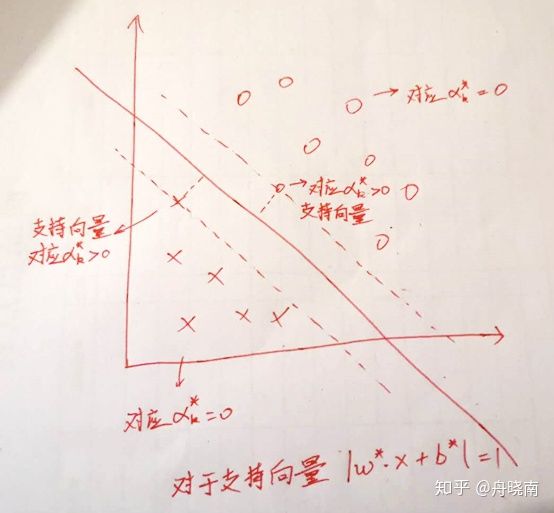 →对应α*ₖ=0
→对应α*ₖ>0
支持向量
支持向量
对应α*ₖ>0
对应α*ₖ=0
对于支持向量 |w*·x+b*|=1
知乎 @舟晓南